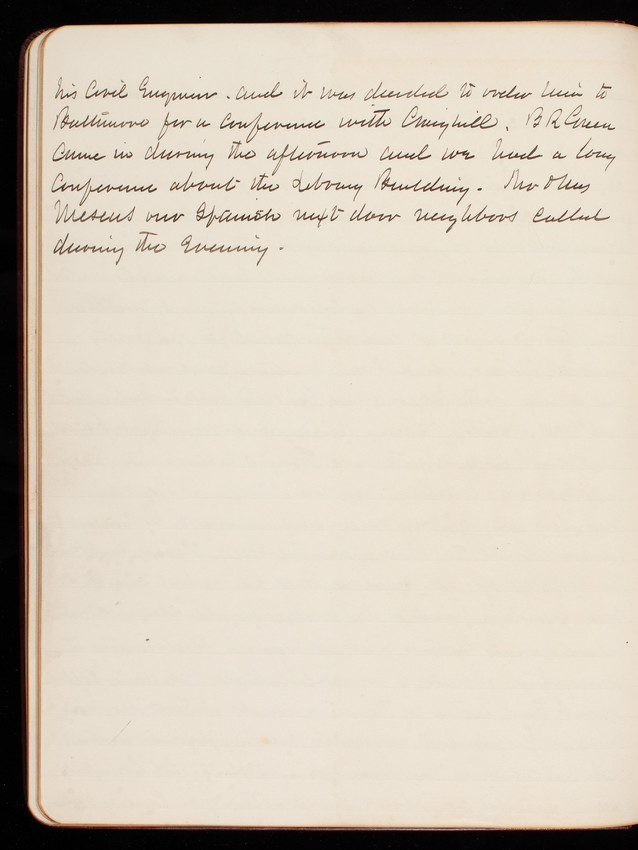 his Civil Engineer. and it was decided to order him to
Baltimore for a conference with Craighill. B R Green
Came in during the afternoon and we had a long
Conference about the Library Building. Mr & Mrs
our Spanish next door neighbors called
during the Evening.